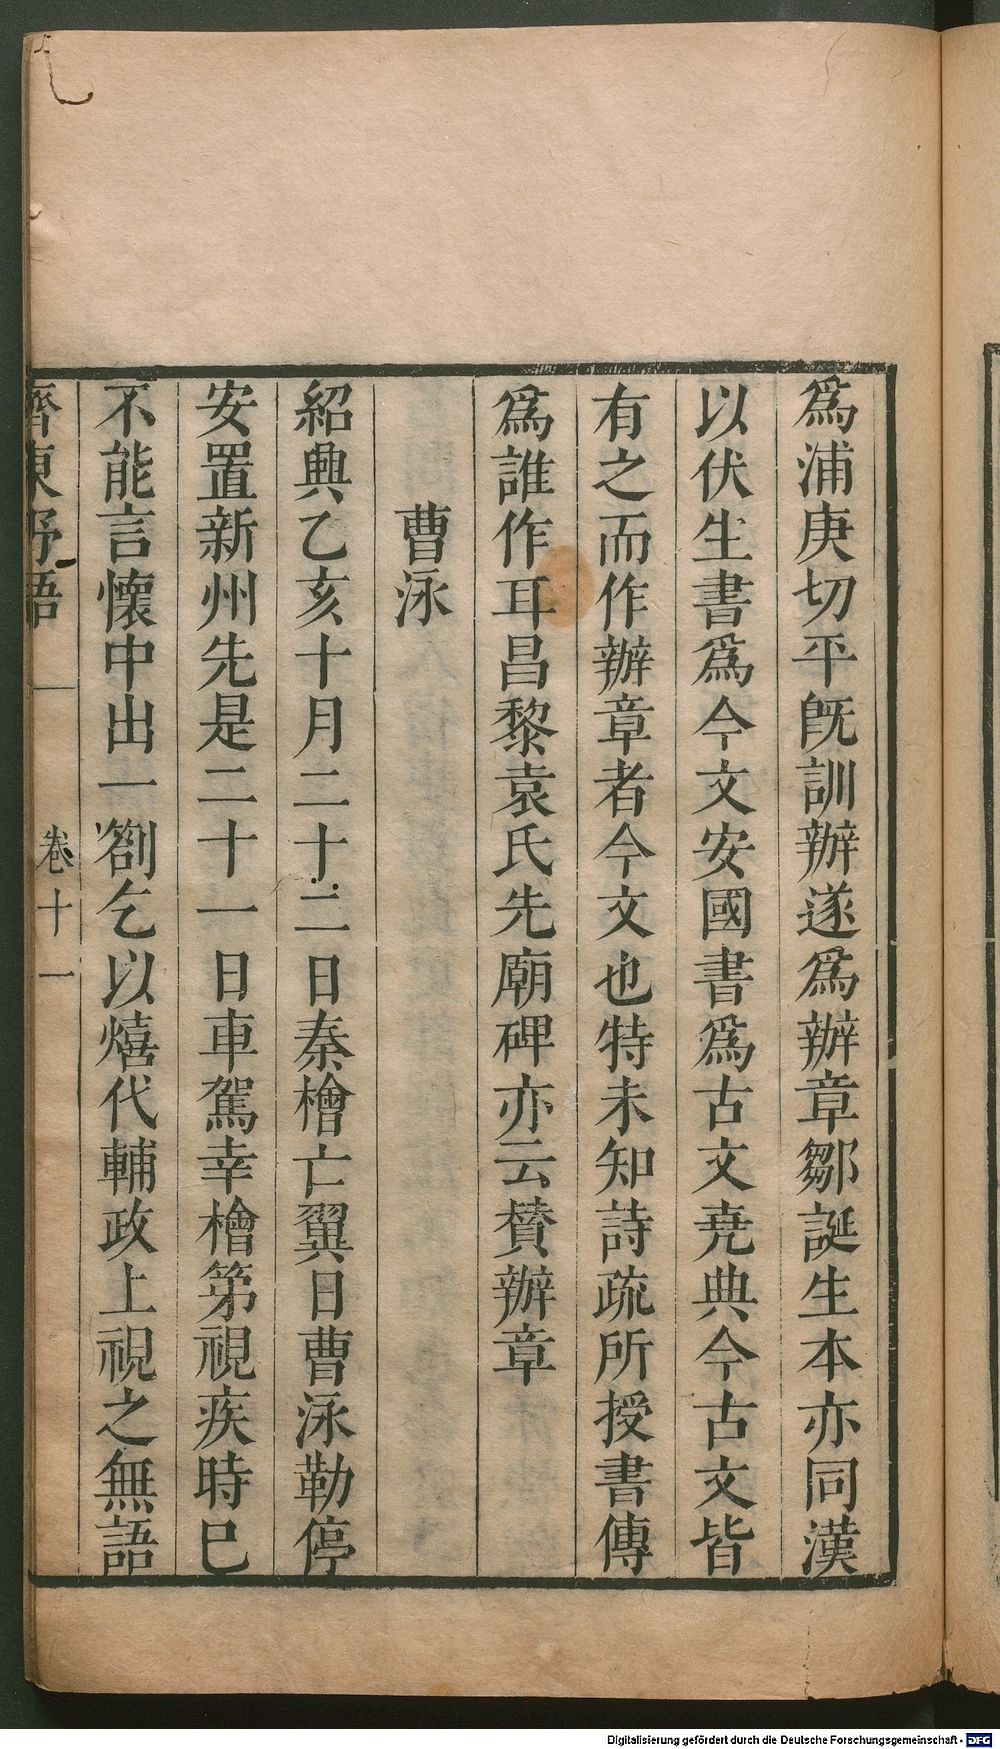 爲浦庚切平旣訓辦遂爲辦章鄒誕生本亦同漢
以伏生書爲今文安國書爲古文堯典今古文皆
有之而作辦章者今文也特未知詩疏所授書傳
爲誰作耳昌黎袁氏先廟碑亦云賛辦章
曹泳
紹興乙亥十月二十二日秦檜亡翼日曹泳勒停
安置新州先是二十一日車駕幸檜第視疾時巳
不能言懷中出一劄乞以熺代輔政上視之無語
齊東野語 卷十一
Digitalisierung gefördert durch die Deutsche Forschungsgemeinschaft - DFG